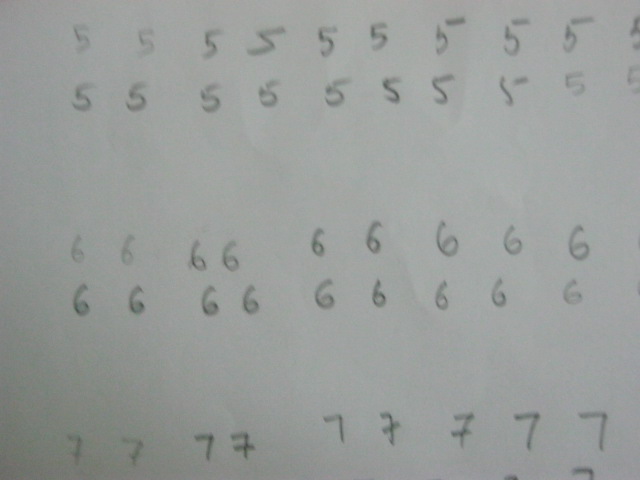 5 5 5 5 5 5 5 5 5 5
5 5 5 5 5 5 5 5 5 5
6 6 6 6 6 6 6 6 6
6 6 6 6 6 6 6 6 6
7 7 7 7 7 7 7 7 7